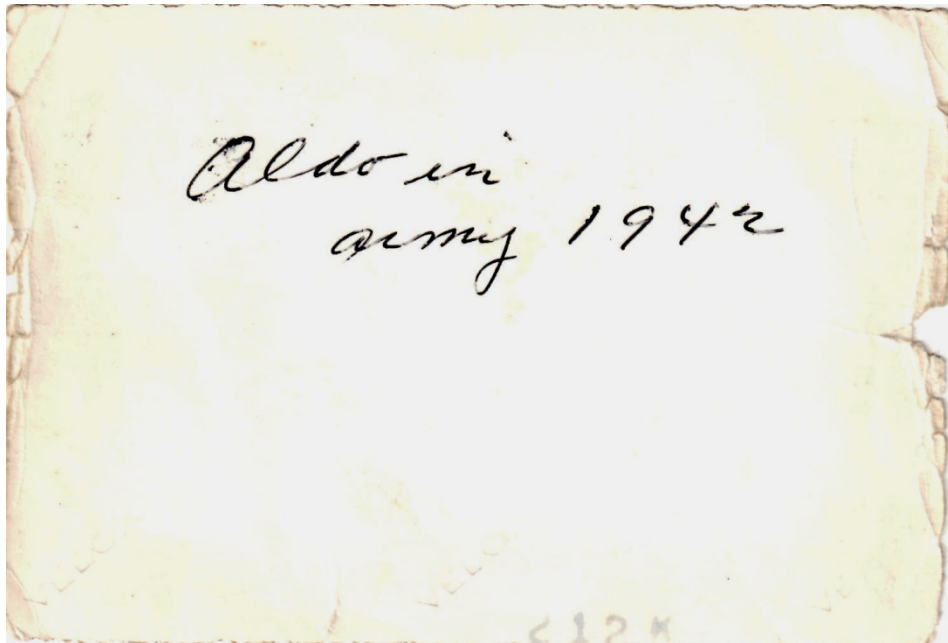 Aldo in
army 1942